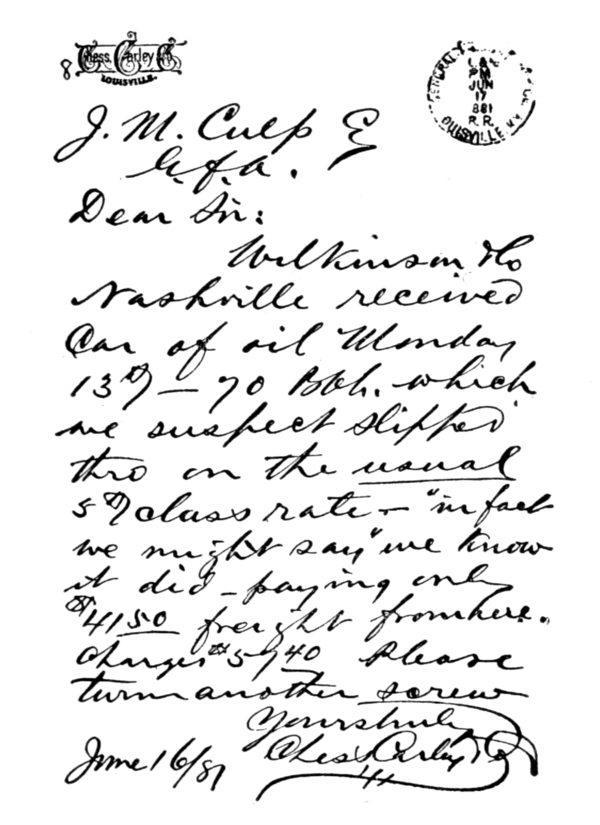 Chess, Carley Co.
LOUISVILLE.
8
PM
JUN
17
881
R.R.
J. M. Culp E
G.F.A.
Dear Sir:
Wilkinson & Co
Nashville received
Car of oil Monday
13th — 70 Bbls. which
we suspect slipped
thro on the usual
5th class rate — "in fact
we might say" we know
it did — paying only
$41 50 freight from here.
Charges $57 40 Please
turn another screw
Yours truly
Chess Carley Co
June 16/81